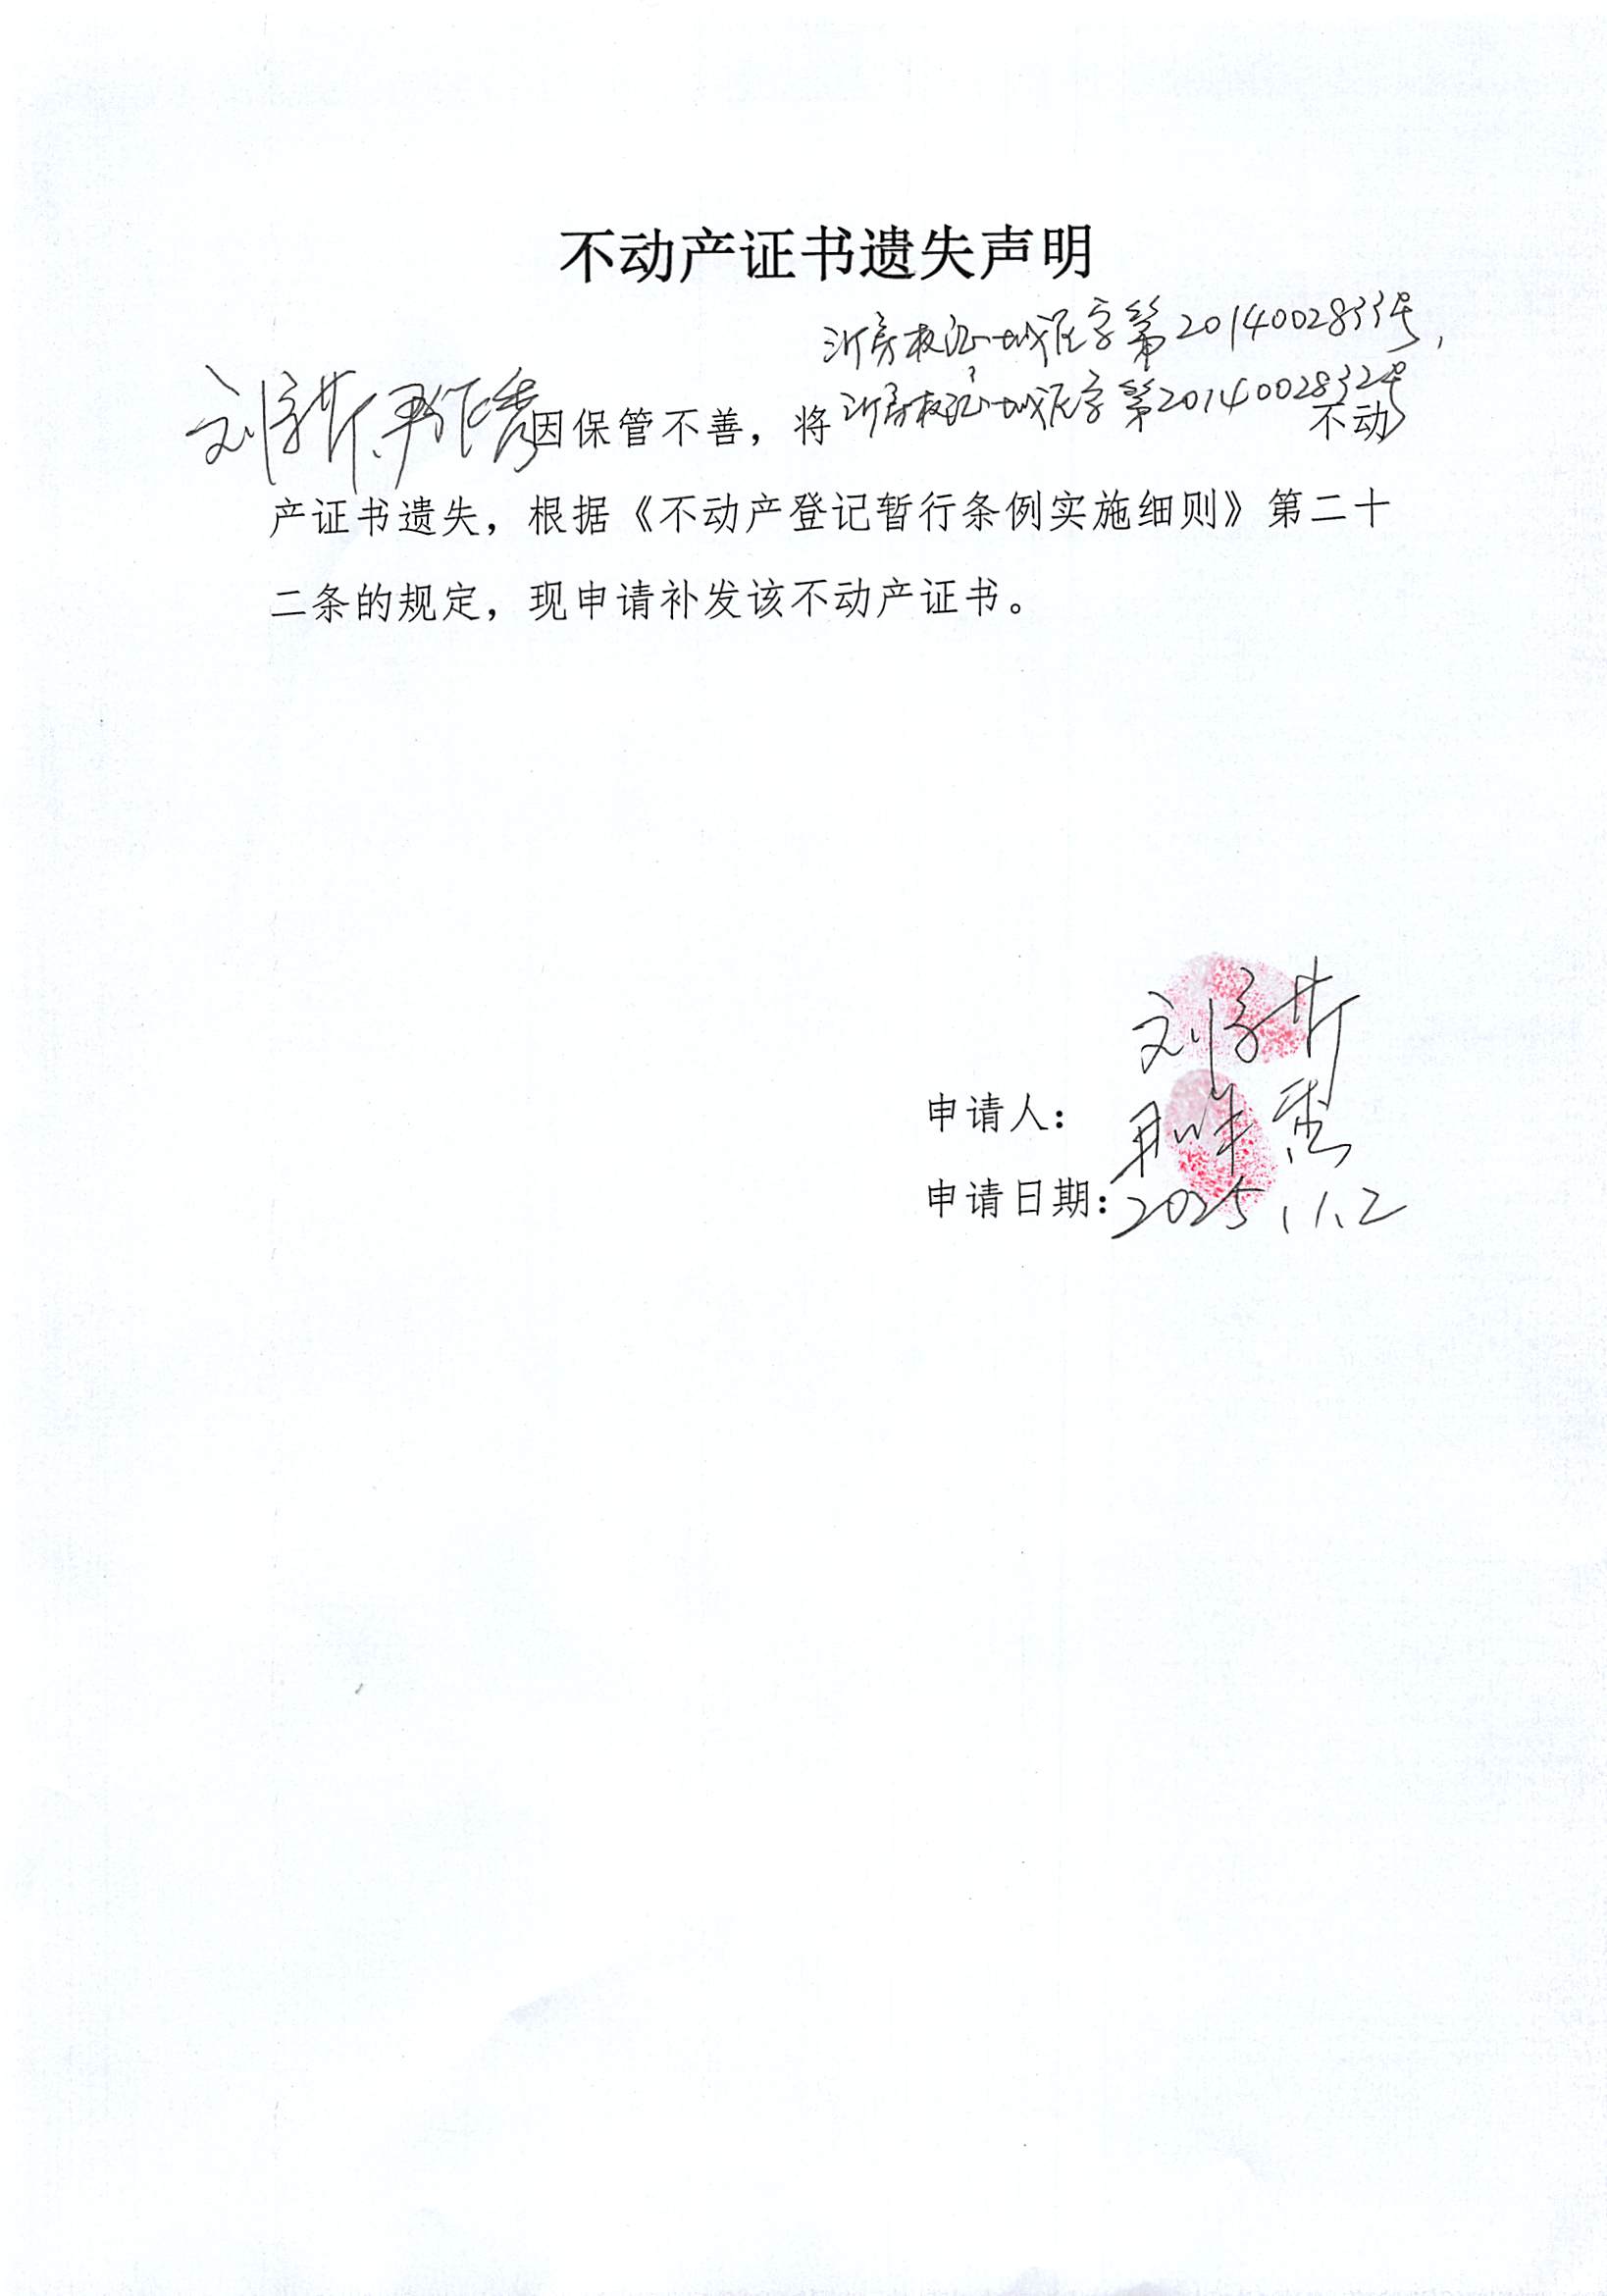 不动产证书遗失声明
沂房权证城区字第2014002833号,
刘 因保管不善，将沂房权证城区字第2014002832号不动
产证书遗失，根据《不动产登记暂行条例实施细则》第二十
二条的规定，现申请补发该不动产证书。
刘
申请人：
申请日期：2025.1.2